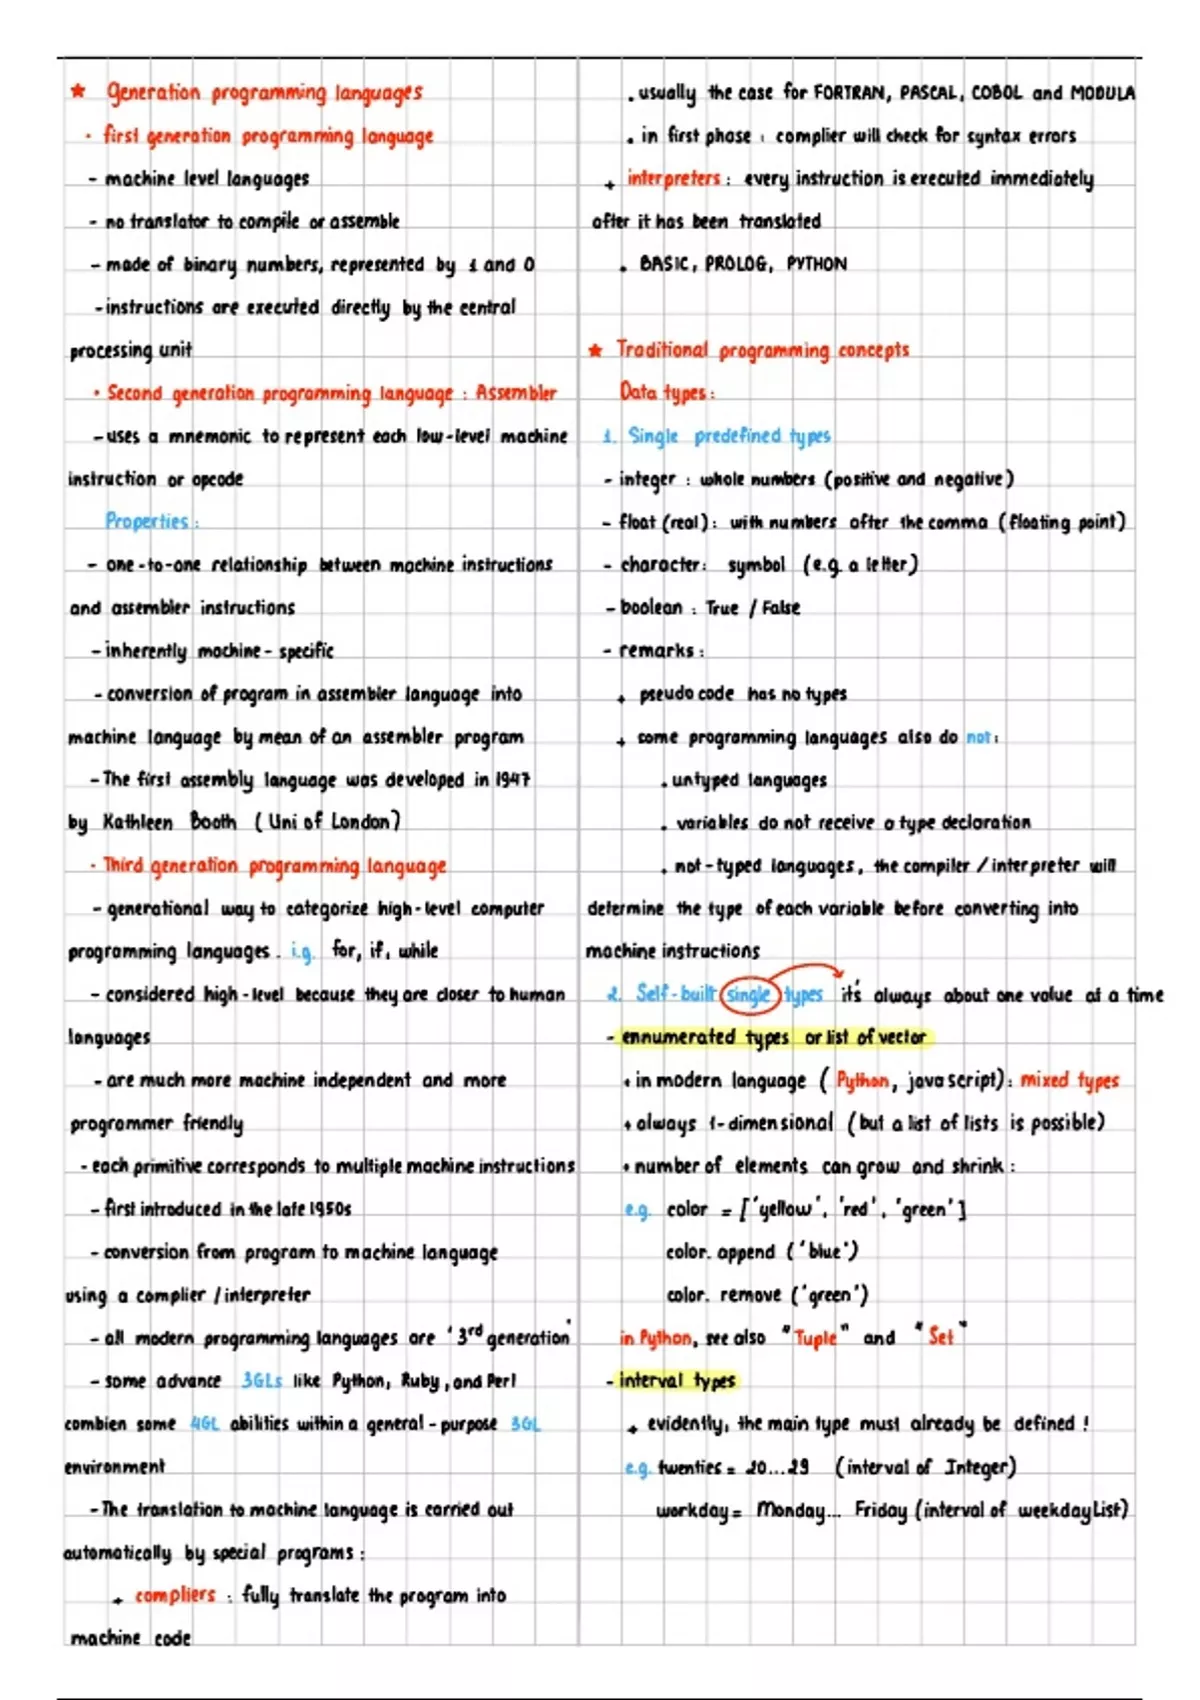 ★ Generation programming languages
· first generation programming language
- machine level languages
- no translator to compile or assemble
- made of binary numbers, represented by 1 and 0
- instructions are executed directly by the central
processing unit
· Second generation programming language : Assembler
- uses a mnemonic to represent each low-level machine
instruction or opcode
Properties :
- one-to-one relationship between machine instructions
and assembler instructions
- inherently machine-specific
- conversion of program in assembler language into
machine language by mean of an assembler program
- The first assembly language was developed in 1947
by Kathleen Booth (Uni of London)
· Third generation programming language
- generational way to categorize high-level computer
programming languages . i.g. for, if, while
- considered high-level because they are closer to human
languages
- are much more machine independent and more
programmer friendly
- each primitive corresponds to multiple machine instructions
- first introduced in the late 1950s
- conversion from program to machine language
using a complier / interpreter
- all modern programming languages are '3rd generation'
- some advance 3GLs like Python, Ruby, and Perl
combien some 4GL abilities within a general-purpose 3GL
environment
- The translation to machine language is carried out
automatically by special programs :
+ compliers : fully translate the program into
machine code
. usually the case for FORTRAN, PASCAL, COBOL and MODULA
. in first phase : complier will check for syntax errors
+ interpreters : every instruction is executed immediately
after it has been translated
. BASIC, PROLOG, PYTHON
★ Traditional programming concepts
Data types :
1. Single predefined types
- integer : whole numbers (positive and negative)
- float (real) : with numbers after the comma (floating point)
- character : symbol (e.g. a letter)
- boolean : True / False
- remarks :
+ pseudo code has no types
+ some programming languages also do not :
. untyped languages
. variables do not receive a type declaration
. not-typed languages, the compiler / interpreter will
determine the type of each variable before converting into
machine instructions
2. Self-built single types it's always about one value at a time
- ennumerated types or list of vector
+ in modern language (Python, java script) : mixed types
+ always 1-dimensional (but a list of lists is possible)
+ number of elements can grow and shrink :
e.g. color = ['yellow', 'red', 'green']
color. append ('blue')
color. remove ('green')
in Python, see also "Tuple" and "Set"
- interval types
+ evidently, the main type must already be defined !
e.g. twenties = 20...29 (interval of Integer)
workday = Monday... Friday (interval of weekdayList)